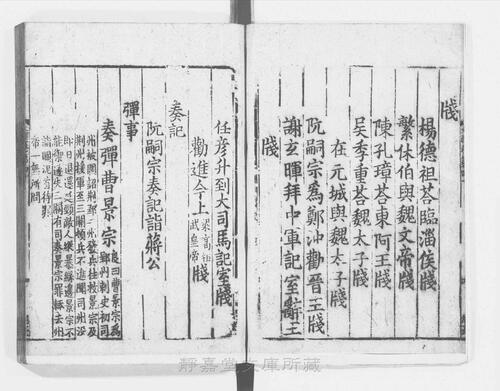 牋
楊德祖荅臨淄侯牋
繁休伯與魏文帝牋
陳孔璋荅東阿王牋
吳季重荅魏太子牋
在元城與魏太子牋
阮嗣宗為鄭沖勸晉王牋
謝玄暉拜中軍記室辭王
牋
任彦升到大司馬記室牋
勸進今上梁高祖武皇帝牋
奏記
阮嗣宗奏記詣蔣公
彈事
奏彈曹景宗
靜嘉堂文庫所藏